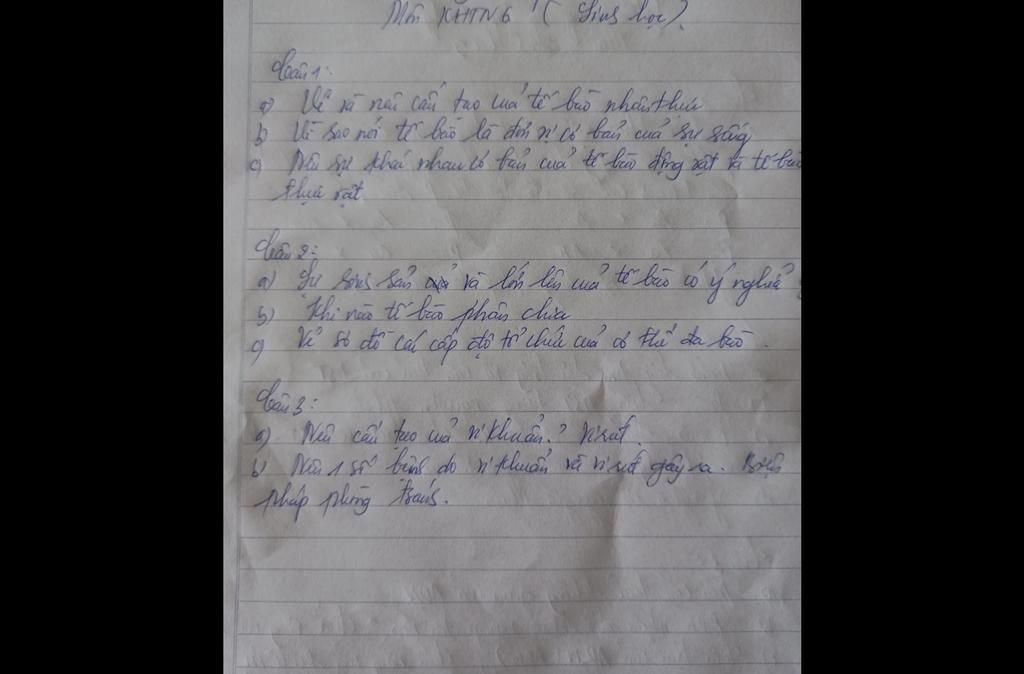 Môn KHTN 6 ( Sinh học).
Câu 1:
a) Vẽ và nêu cấu tạo của tế bào nhân thực
b) Vì sao nói tế bào là đơn vị cơ bản của sự sống
c) Nêu sự khác nhau cơ bản của tế bào động vật và tế bào
thực vật.
Câu 2:
a) Sự sinh sản và lớn lên của tế bào có ý nghĩa
b) Khi nào tế bào phân chia
c) Vẽ sơ đồ các cấp độ tổ chức của cơ thể đa bào.
Câu 3:
a) Nêu cấu tạo của vi khuẩn? Virut.
b) Nêu 1 số bệnh do vi khuẩn và virut gây ra. Biện
pháp phòng tránh.